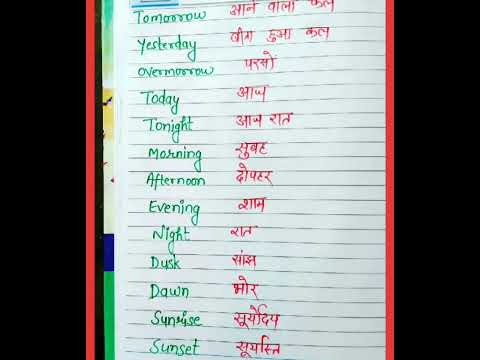 Tomorrow आने वाला कल
Yesterday बीता हुआ कल
overmorrow परसों
Today आज
Tonight आज रात
Morning सुबह
Afternoon दोपहर
Evening शाम
Night रात
Dusk सांझ
Dawn भोर
Sunrise सूर्योदय
Sunset सूर्यास्त